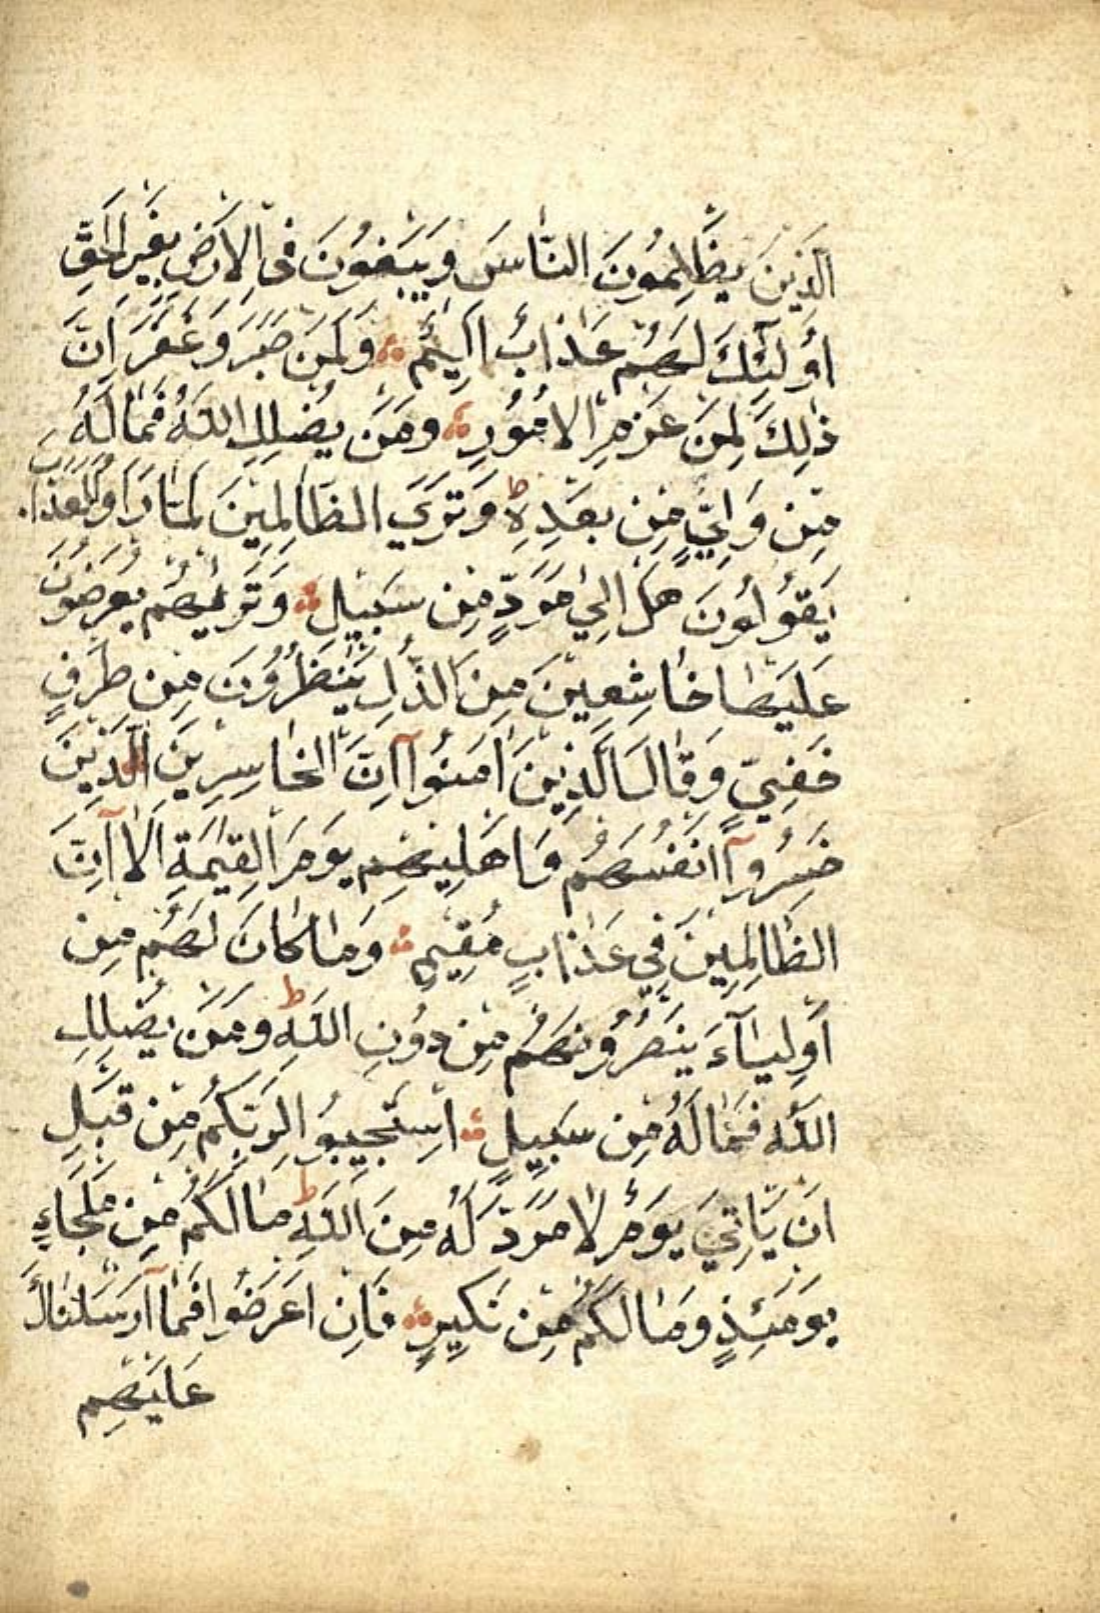 الَّذِينَ يَظْلِمُونَ النَّاسَ وَيَبْغُونَ فِى الْاَرْضِ بِغَيْرِ الْحَقِّ
اُولٰٓئِكَ لَهُمْ عَذَابٌ اَلِيمٌ وَلَمَنْ صَبَرَ وَغَفَرَ اِنَّ
ذٰلِكَ لَمِنْ عَزْمِ الْاُمُورِ وَمَنْ يُضْلِلِ اللّٰهُ فَمَا لَهُ
مِنْ وَلِيٍّ مِنْ بَعْدِهِ ط وَتَرَي الظَّالِمِينَ لَمَّا رَاَوُا الْعَذَابَ
يَقُولُونَ هَلْ اِلٰي مَرَدٍّ مِنْ سَبِيلٍ وَتَرٰيهُمْ يُعْرَضُونَ
عَلَيْهَا خَاشِعِينَ مِنَ الذُّلِّ يَنْظُرُونَ مِنْ طَرْفٍ
خَفِيٍّ وَقَالَ الَّذِينَ اٰمَنُوٓا اِنَّ الْخَاسِرِينَ الَّذِينَ
خَسِرُوٓا اَنْفُسَهُمْ وَاَهْلِيهِمْ يَوْمَ الْقِيٰمَةِ اَلَآ اِنَّ
الظَّالِمِينَ فِي عَذَابٍ مُقِيمٍ وَمَا كَانَ لَهُمْ مِنْ
اَوْلِيَآءَ يَنْصُرُونَهُمْ مِنْ دُونِ اللّٰهِ ط وَمَنْ يُضْلِلِ
اللّٰهُ فَمَا لَهُ مِنْ سَبِيلٍ اِسْتَجِيبُوا لِرَبِّكُمْ مِنْ قَبْلِ
اَنْ يَاْتِيَ يَوْمٌ لَا مَرَدَّ لَهُ مِنَ اللّٰهِ ط مَا لَكُمْ مِنْ مَلْجَاءٍ
يَوْمَئِذٍ وَمَا لَكُمْ مِنْ نَكِيرٍ فَاِنْ اَعْرَضُوا فَمَآ اَرْسَلْنَاكَ
عَلَيْهِمْ